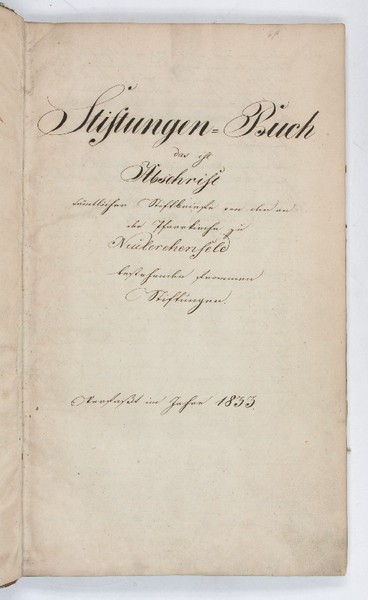 Stiftungen=Buch
das ist
Abschrift
sämtlicher Stiftbriefe von den an
der Pfarrkirche zu
Neulerchenfeld
bestehenden frommen
Stiftungen.
Verfaßt im Jahre 1833.